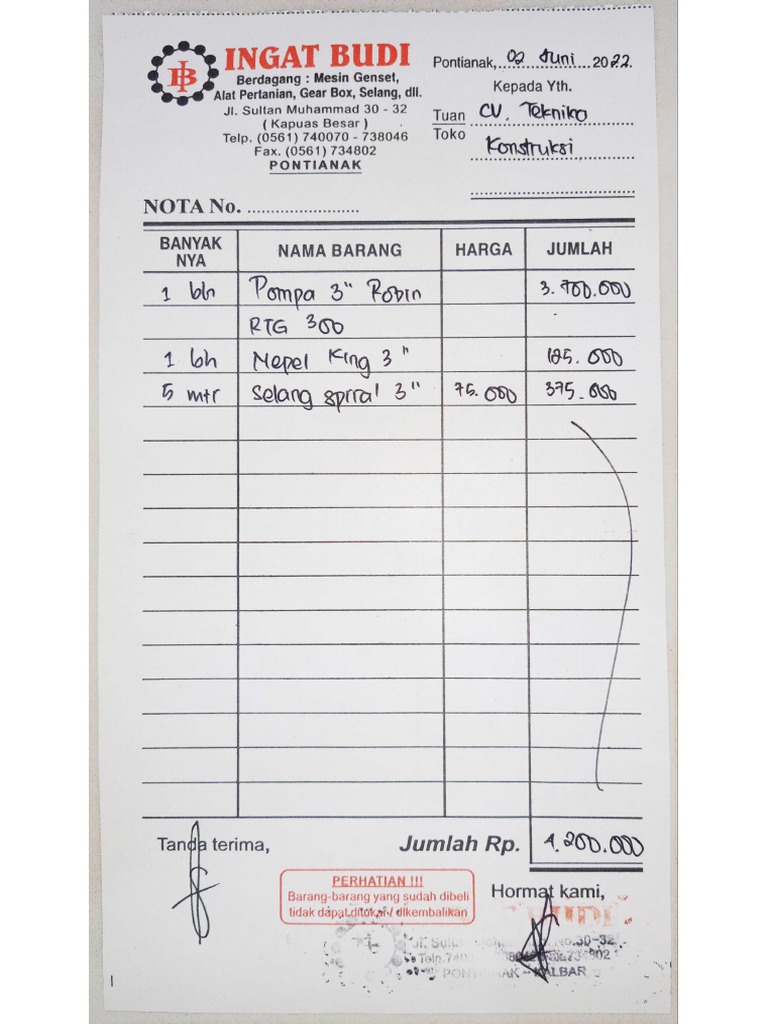 INGAT BUDI
Berdagang : Mesin Genset,
Alat Pertanian, Gear Box, Selang, dll.
Jl. Sultan Muhammad 30 - 32
( Kapuas Besar )
Telp. (0561) 740070 - 738046
Fax. (0561) 734802
PONTIANAK
Pontianak, 02 Juni 2022
Kepada Yth.
Tuan CV. Teknika
Toko Konstruksi
NOTA No.
BANYAK NYA NAMA BARANG HARGA JUMLAH
1 bh Pompa 3" Robin 3.700.000
RTG 300
1 bh Nepel King 3" 125.000
5 mtr Selang spiral 3" 75.000 375.000
Tanda terima, Jumlah Rp. 4.200.000
PERHATIAN !!!
Barang-barang yang sudah dibeli
tidak dapat ditukar / dikembalikan
Hormat kami,
BUDI
No.30-32
Telp.740 734802
PONTIANAK - KALBAR